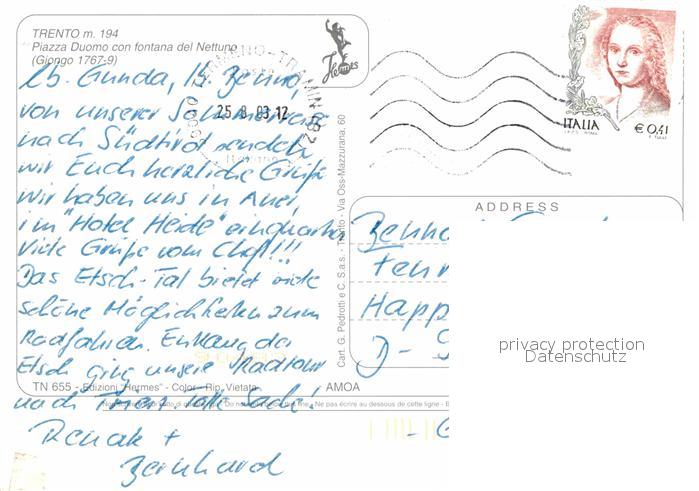 TRENTO m. 194
Piazza Duomo con fontana del Nettuno
(Giongo 1767-9)
Hermes
Lb. Gunda, lb. Benno,
von unserer
nach Südtirol senden
wir Euch herzliche Grüße
wir haben uns in
im "Hotel Heide" einquartiert
Viele Grüße vom Chef!!!
Das Etsch-Tal bietet viele
schöne Möglichkeiten zum
Radfahren. Entlang der
Etsch ging unsere Radtour
nach Trient. Tolle Sache!
Renate +
Bernhard
25.8.03.12
TN 655 - Edizioni "Hermes" - Color - Rip. Vietata
AMOA
Cart. G. Pedrotti e C. S.a.s. - Trento - Via Oss-Mazzurana, 60
ITALIA
€ 0,41
ADDRESS
Happ
D-
privacy protection
Datenschutz